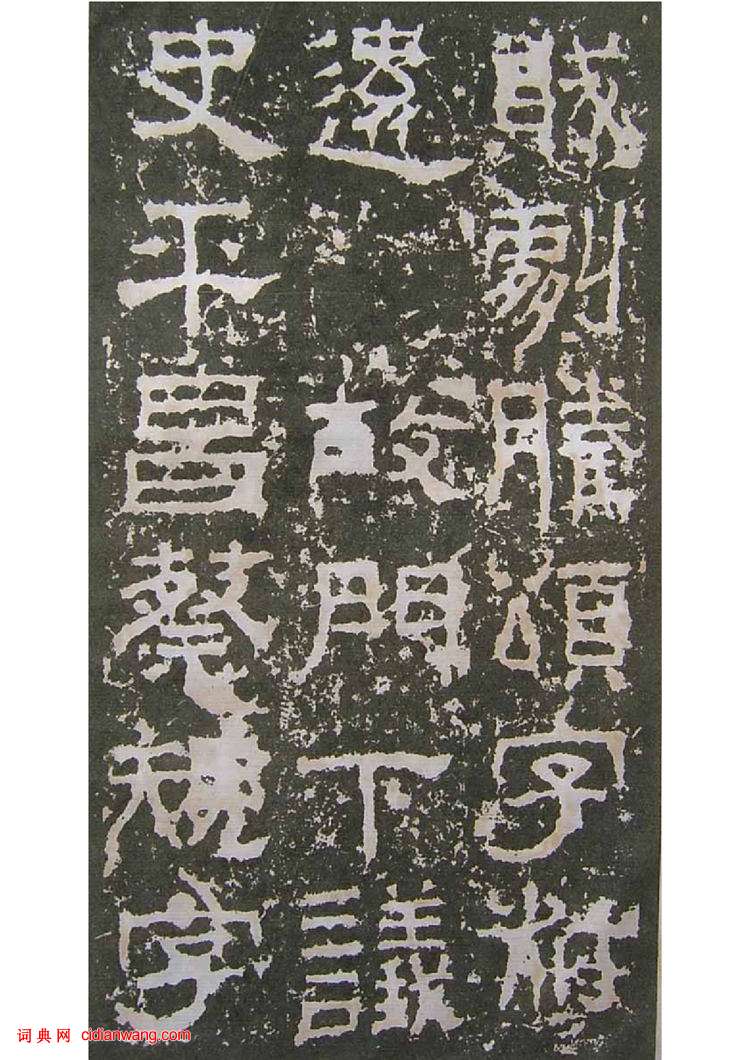 賊劇騰頌字叔
遠 故門下議
史平昌蔡規字
词典网 cidianwang.com